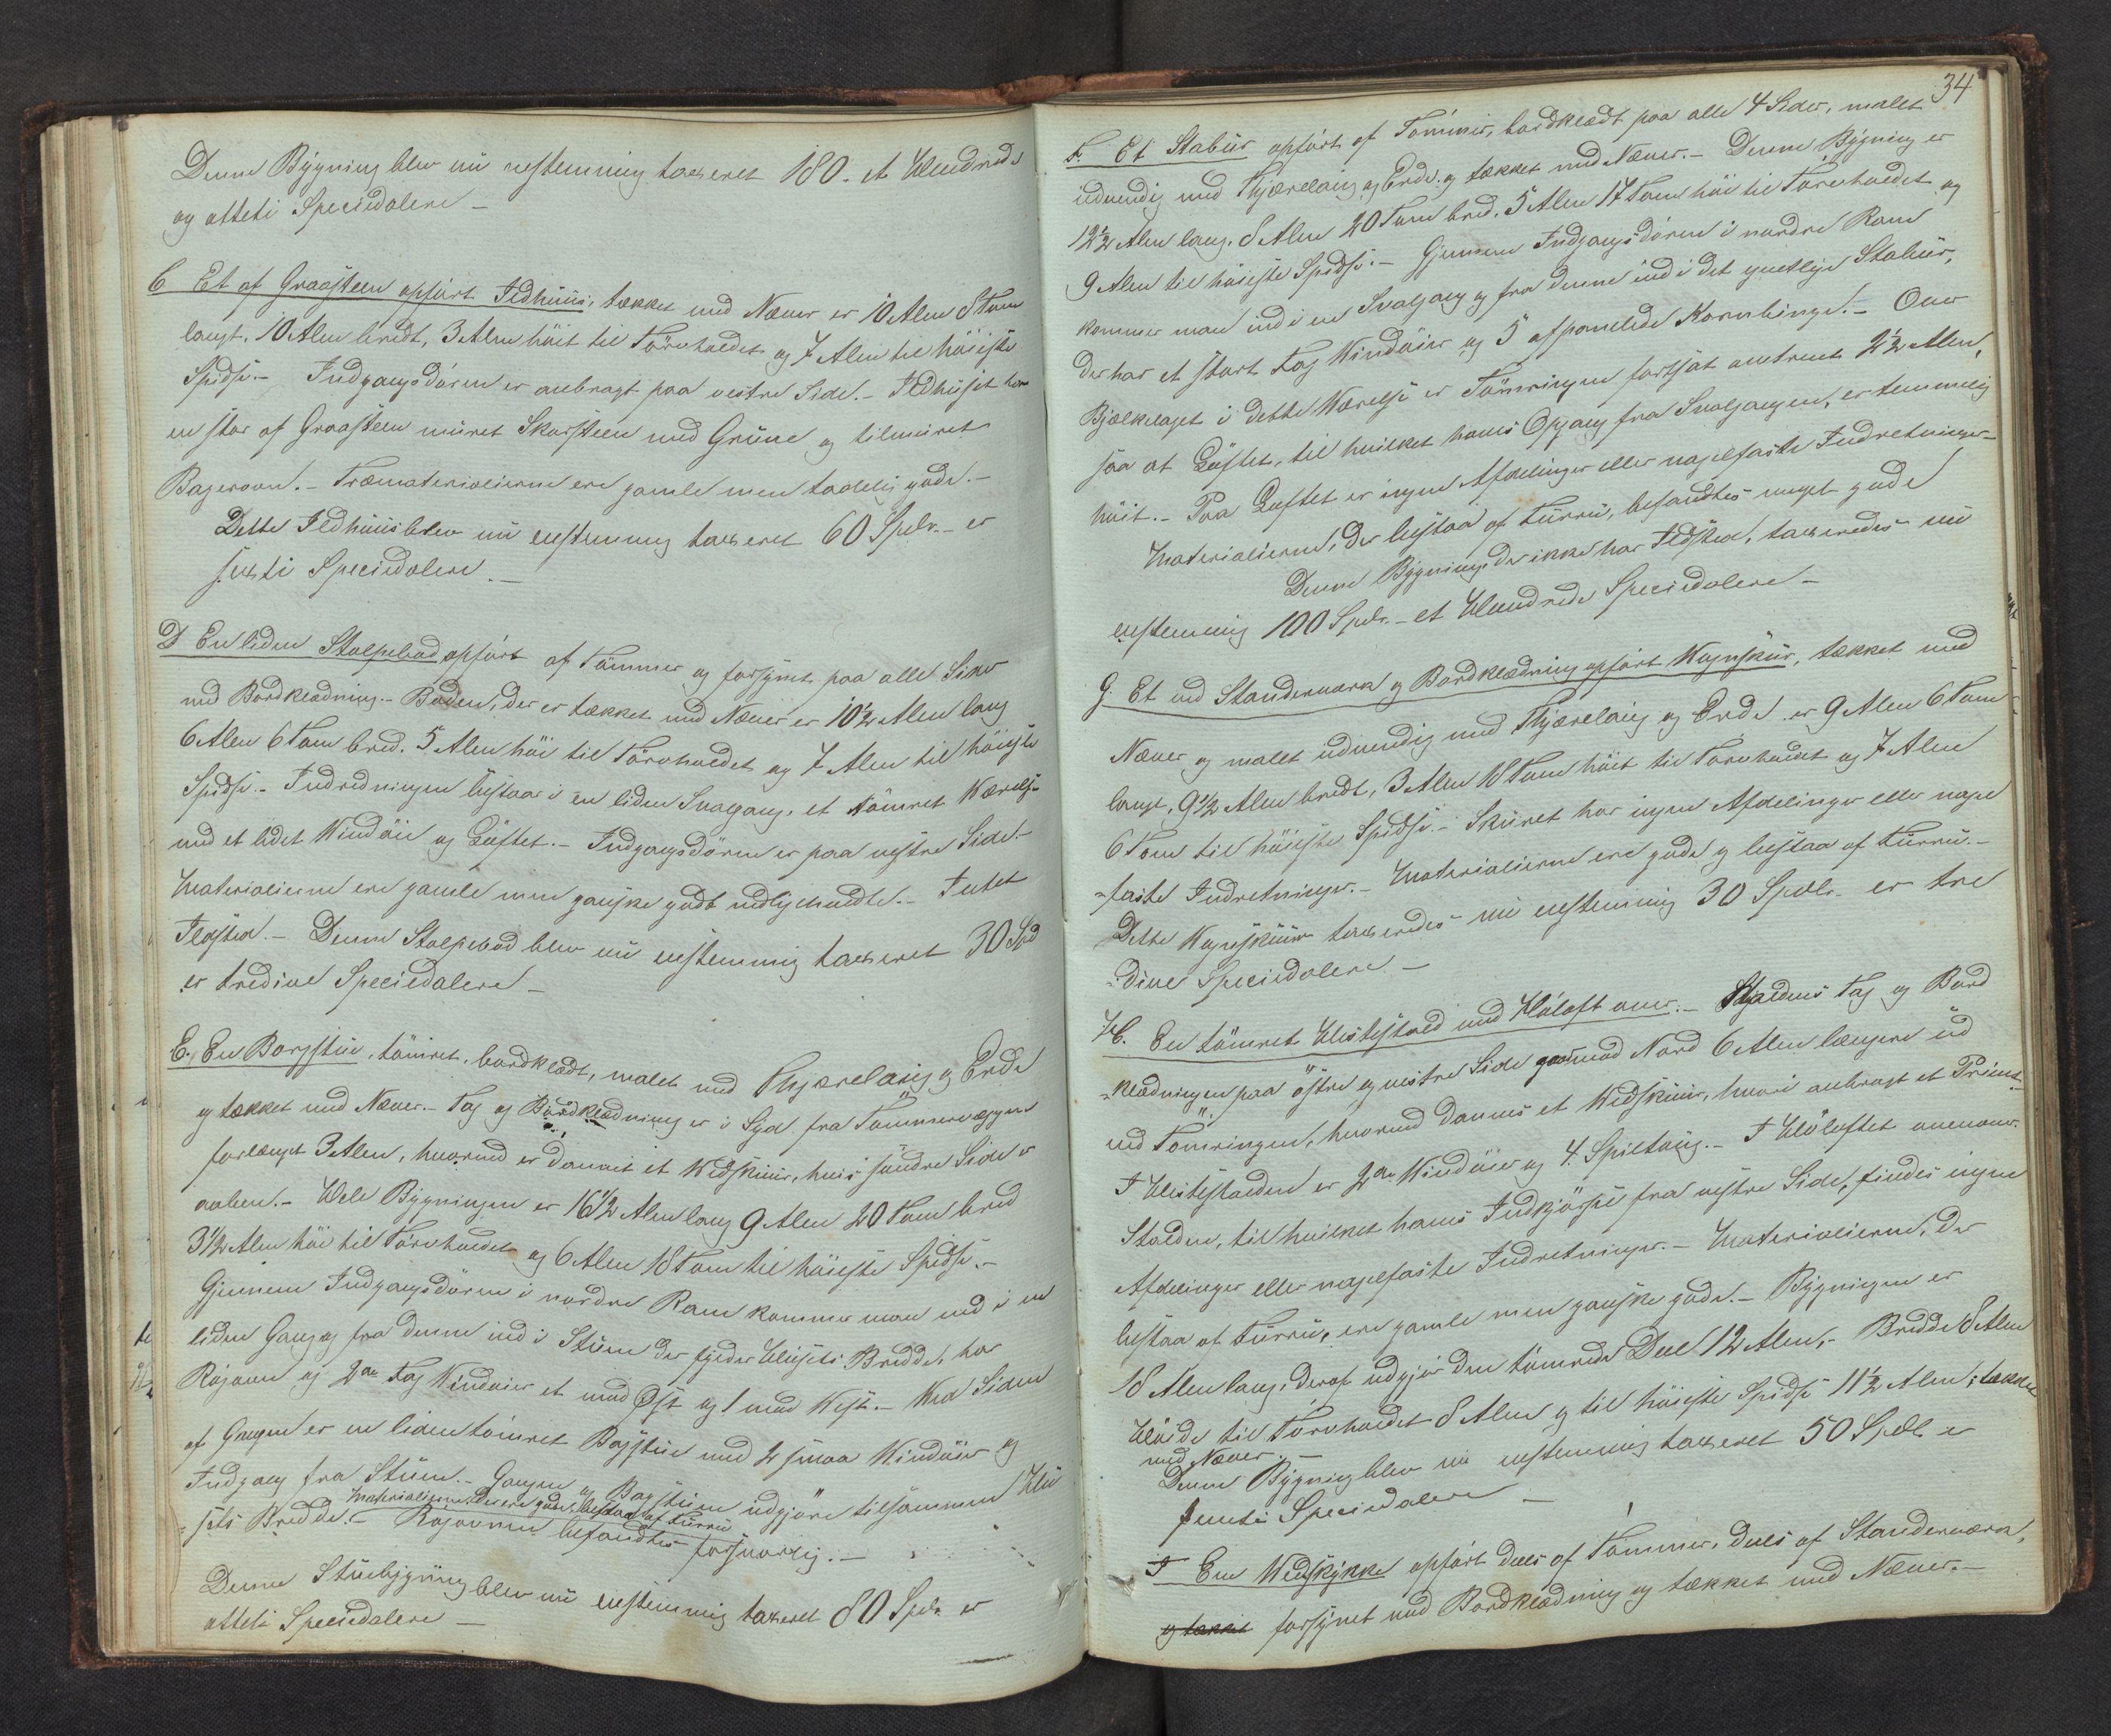 Denne Bygning blev nu eenstemmig taxeret 180. et Hundrede
og otteti Speciedalere –
C Et af Graasteen opført Ildhuus, tækket med Næver er 10 Alen 8 Tom
langt, 10 Alen bredt, 3 Alen höit til Törvholdet og 7 Alen til höieste
Spidse. – Indgangsdøren er anbragt paa vestre Side. – Ildhuset har
en stor af Graasteen muret Skorsteen med Gruue og tilmuret
Bagerovn. – Træmaterialierne ere gamle men tadelig gode. –
Dette Ildhuus blev nu eenstemmig taxeret 60 Spdr. – er
sexti Speciedalere. –
D En liden Stolpebod opført af Tömmer og forsynet paa alle Sider
med Bordklædning. – Boden, der er tækket med Næver er 10½ Alen lang
6 Alen 6 Tom bred. 5 Alen höi til Törvholdet og 7 Alen til höieste
Spidse. – Indredningen bestaar i en liden Svalgang, et tömret Værelse
med et lidet Vindöie og Loftet. – Indgangsdören er paa vestre Side. –
Materialierne ere gamle men ganske godt vedligeholdte. – Intet
Ildsted. – Denne Stolpebod blev nu eenstemmig taxeret 30 Spd
er tredive Speciedalere –
E. En Borgstue, tömret, bordklædt, malet med Thjærelaug og Erde
og tækket med Næver. – Tag og Bordklædning er i Syd fra Tömmervæggen
forlænget 3 Alen, hvorved er dannet et Vedskuur, hvis söndre Side er
aaben. – Hele Bygningen er 16½ Alen lang 9 Alen 20 Tom bred
3½ Alen höi til Törvholdet og 6 Alen 18 Tom til höieste Spidse. –
Gjennem Indgangsdören i nordre Ram kommer man ind i en
liden Gang og fra denne ind i Stuen der fylder Husets Bredde, har
Rösovn og 2de Fag Vinduier et mod Øst og 1 mod Vest. – Ved Siden
af Gangen er en liden tömret Bagstue med 2 smaa Vinduier og
Indgang fra Stuen. – Gangen og Bagstuen udgjöre tilsammen Hu
sets Bredde. – Materialierne, der ere gode, bestaa af Furru
Rösovnen befandtes forsvarlig. –
Denne Stuebygning blev nu eenstemmig taxeret 80 Spdr. er
otteti Speciedalere –
34
F. Et Stabur opført af Tömmer, bordklædt paa alle 4 Sider, malet
udvendig med Thjærelaug og Erde og tækket med Næver. – Denne Bygning er
12½ Alen lang. 8 Alen 20 Tom bred. 5 Alen 17 Tom höi til Törvholdet og
9 Alen til höieste Spidse. – Gjennem Indgangsdören i nordre Ram
kommer man ind i en Svalgang og fra denne ind i det egentlige Stabur,
der har et stort Fag Vinduier og 5 afpanelede Kornbinge. – Over
Bjælkelaget i dette Værelse er Tömringen fortsat omtrent 2½ Alen,
saa at Loftet, til hvilket haves Opgang fra Svalgangen, er temmelig
höit. – Paa Loftet er ingen Afdelinger eller nagelfaste Indretninger –
Materialierne, der bestaa af Furru, befandtes meget gode
Denne Bygning, der ikke har Ildsted, taxeredes nu
eenstemmig 100 Spdr. – et Hundrede Speciedalere –
G. Et ved Standerværk og Bordklædning opført Vognskur, tækket med
Næver og malet udvendig med Thjærelaug og Erde er 9 Alen 6 Tom
langt, 9½ Alen bredt, 3 Alen 18 Tom höit til Törvholdet og 7 Alen
6 Tom til höieste Spidse. – Skuret har ingen Afdelinger eller nagel
-faste Indretninger. – Materialierne ere gode og bestaa af Furru. –
Dette Vognskuur taxeredes nu eenstemmig 30 Spdlr. er tre
-dive Speciedalere –
H. En tömret Hestestald med Höloft over. – Staldens Tag og Bord
-klædningen paa östre og vestre Side gaar mod Nord 6 Alen længere ud
end Tömringen, hvorved dannes et Vedskuur, hvori anbragt et Privet
I Hestestalden er 2de Vinduier og 4 Spiltaug. – I Höloftet ovenover
Stalden, til hvilket haves Indkjörsel fra vestre Side, findes ingen
Afdelinger eller nagelfaste Indretninger. – Materialierne, der
bestaa af Furru, ere gamle men ganske gode. – Bygningen er
18 Alen lang, deraf udgjör den tömrede Deel 12 Alen, – Bredde 8 Alen
Höide til Törvholdet 8 Alen og til höieste Spidse 11½ Alen; tækket
med Næver. –
Denne Bygning blev nu eenstemmig taxeret 50 Spdlr er
femti Speciedalere –
I En Vedskykke opført deels af Tömmer, deels af Standerværk,
og tækket forsynet med Bordklædning og tækket med Næver. –